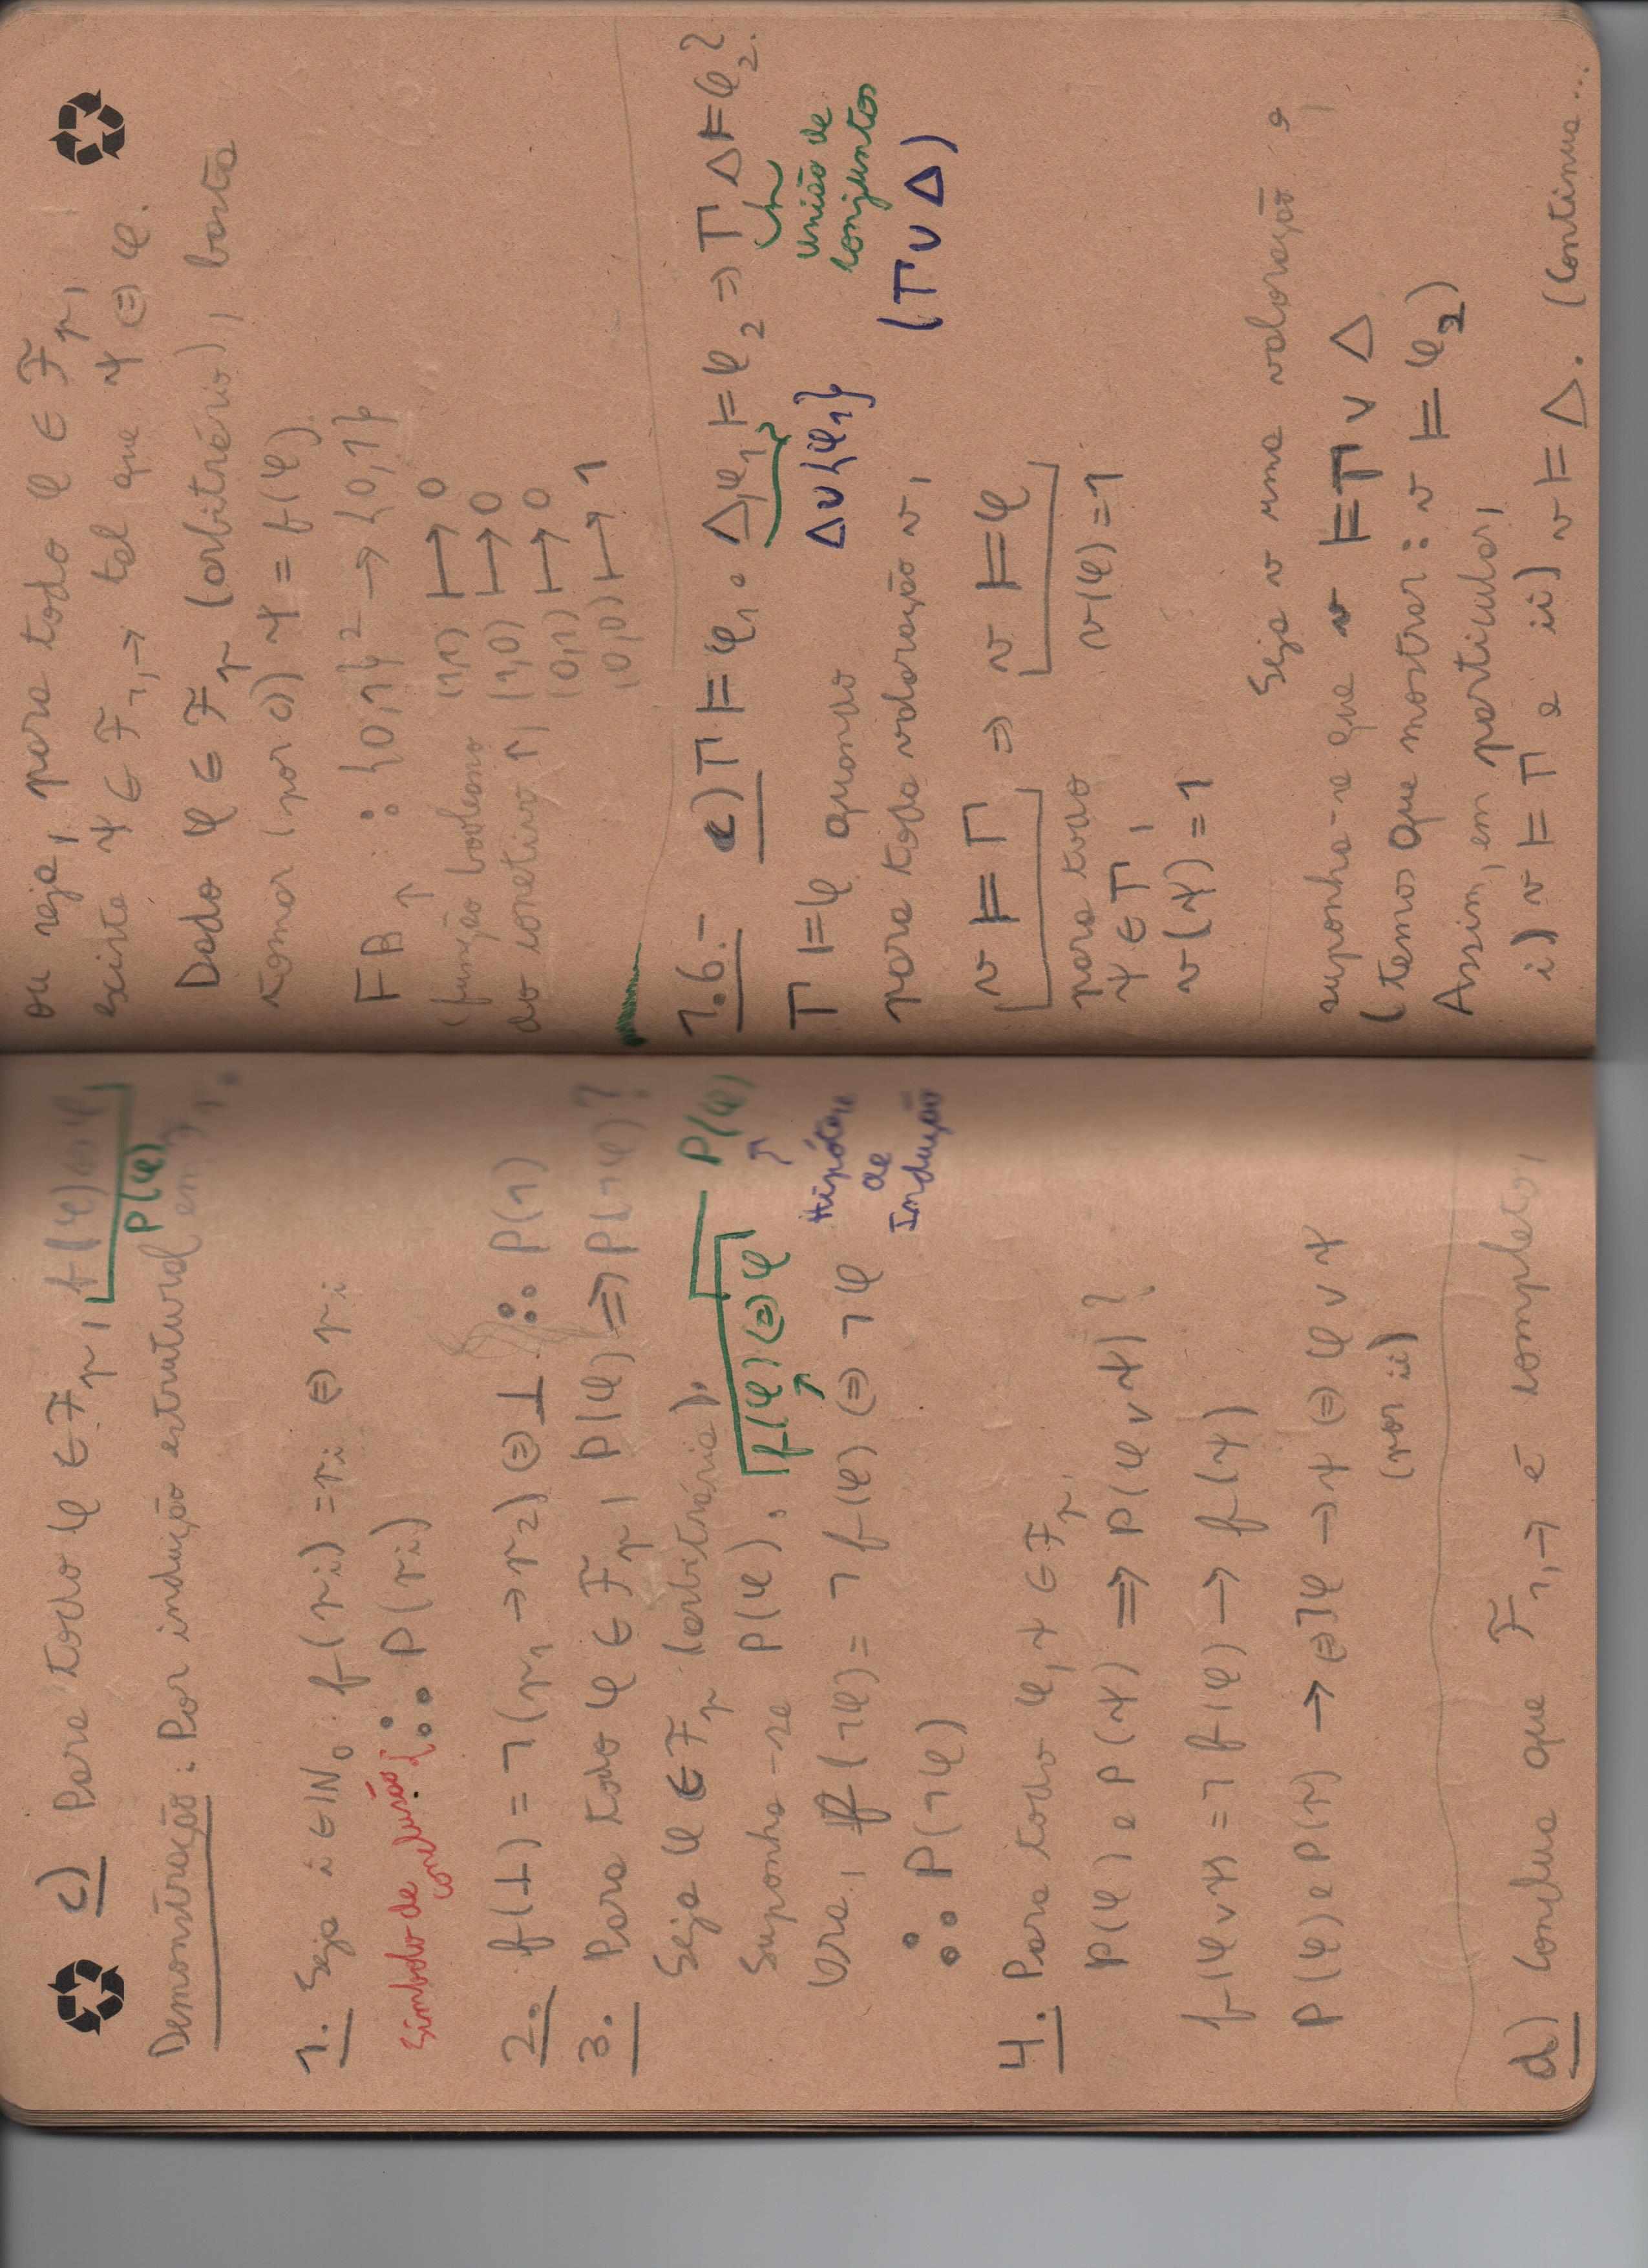 c) Para todo φ ∈ F_p, f(φ) ⇔ φ
P(φ)
Demonstração: Por indução estrutural em
1. Seja i ∈ IN₀. f(p_i) = p_i ⇔ p_i
Símbolo de conclusão { ∴ P(p_i)
2. f(⊥) = ¬(p₁ → p₂) ⇔ ⊥ ∴ P(⊥)
3. Para todo φ ∈ F_p, P(φ) ⇒ P(¬φ)?
Seja φ ∈ F_p (arbitrária).
Suponha-se P(φ). f(φ) ⇔ φ P(φ)
Ora, f(¬φ) = ¬f(φ) ⇔ ¬φ
↑ Hipótese
de
Indução
∴ P(¬φ)
4. Para todo φ, ψ ∈ F_p.
P(φ) e P(ψ) ⇒ P(φ ∨ ψ)?
f(φ ∨ ψ) = ¬f(φ) → f(ψ)
P(φ) e P(ψ) → ⇔ ¬φ → ψ ⇔ φ ∨ ψ
(por ii)
d) Conclua que F_¬,→ é completo,
ou seja, para todo φ ∈ F_p,
existe ψ ∈ F_¬,→ tal que ψ ⇔ φ.
Dado φ ∈ F_p (arbitrário), basta
tomar (por c)) ψ = f(φ).
FB_↑ : {0,1}² → {0,1}
(função booleana
do conetivo ↑)
(1,1) ⟼ 0
(1,0) ⟼ 0
(0,1) ⟼ 0
(0,0) ⟼ 1
1.6.- c) Γ ⊨ φ₁ e Δ,φ₁ ⊨ φ₂ ⇒ Γ, Δ ⊨ φ₂?
Δ∪{φ₁}
união de
conjuntos
(Γ ∪ Δ)
Γ ⊨ φ quando
para toda valoração v,
v ⊨ Γ ⇒ v ⊨ φ
para todo
ψ ∈ Γ,
v(ψ) = 1
v(φ) = 1
Seja v uma valoração e
suponha-se que v ⊨ Γ ∪ Δ
(temos que mostrar: v ⊨ φ₂)
Assim, em particular,
i) v ⊨ Γ e ii) v ⊨ Δ. (Continua...